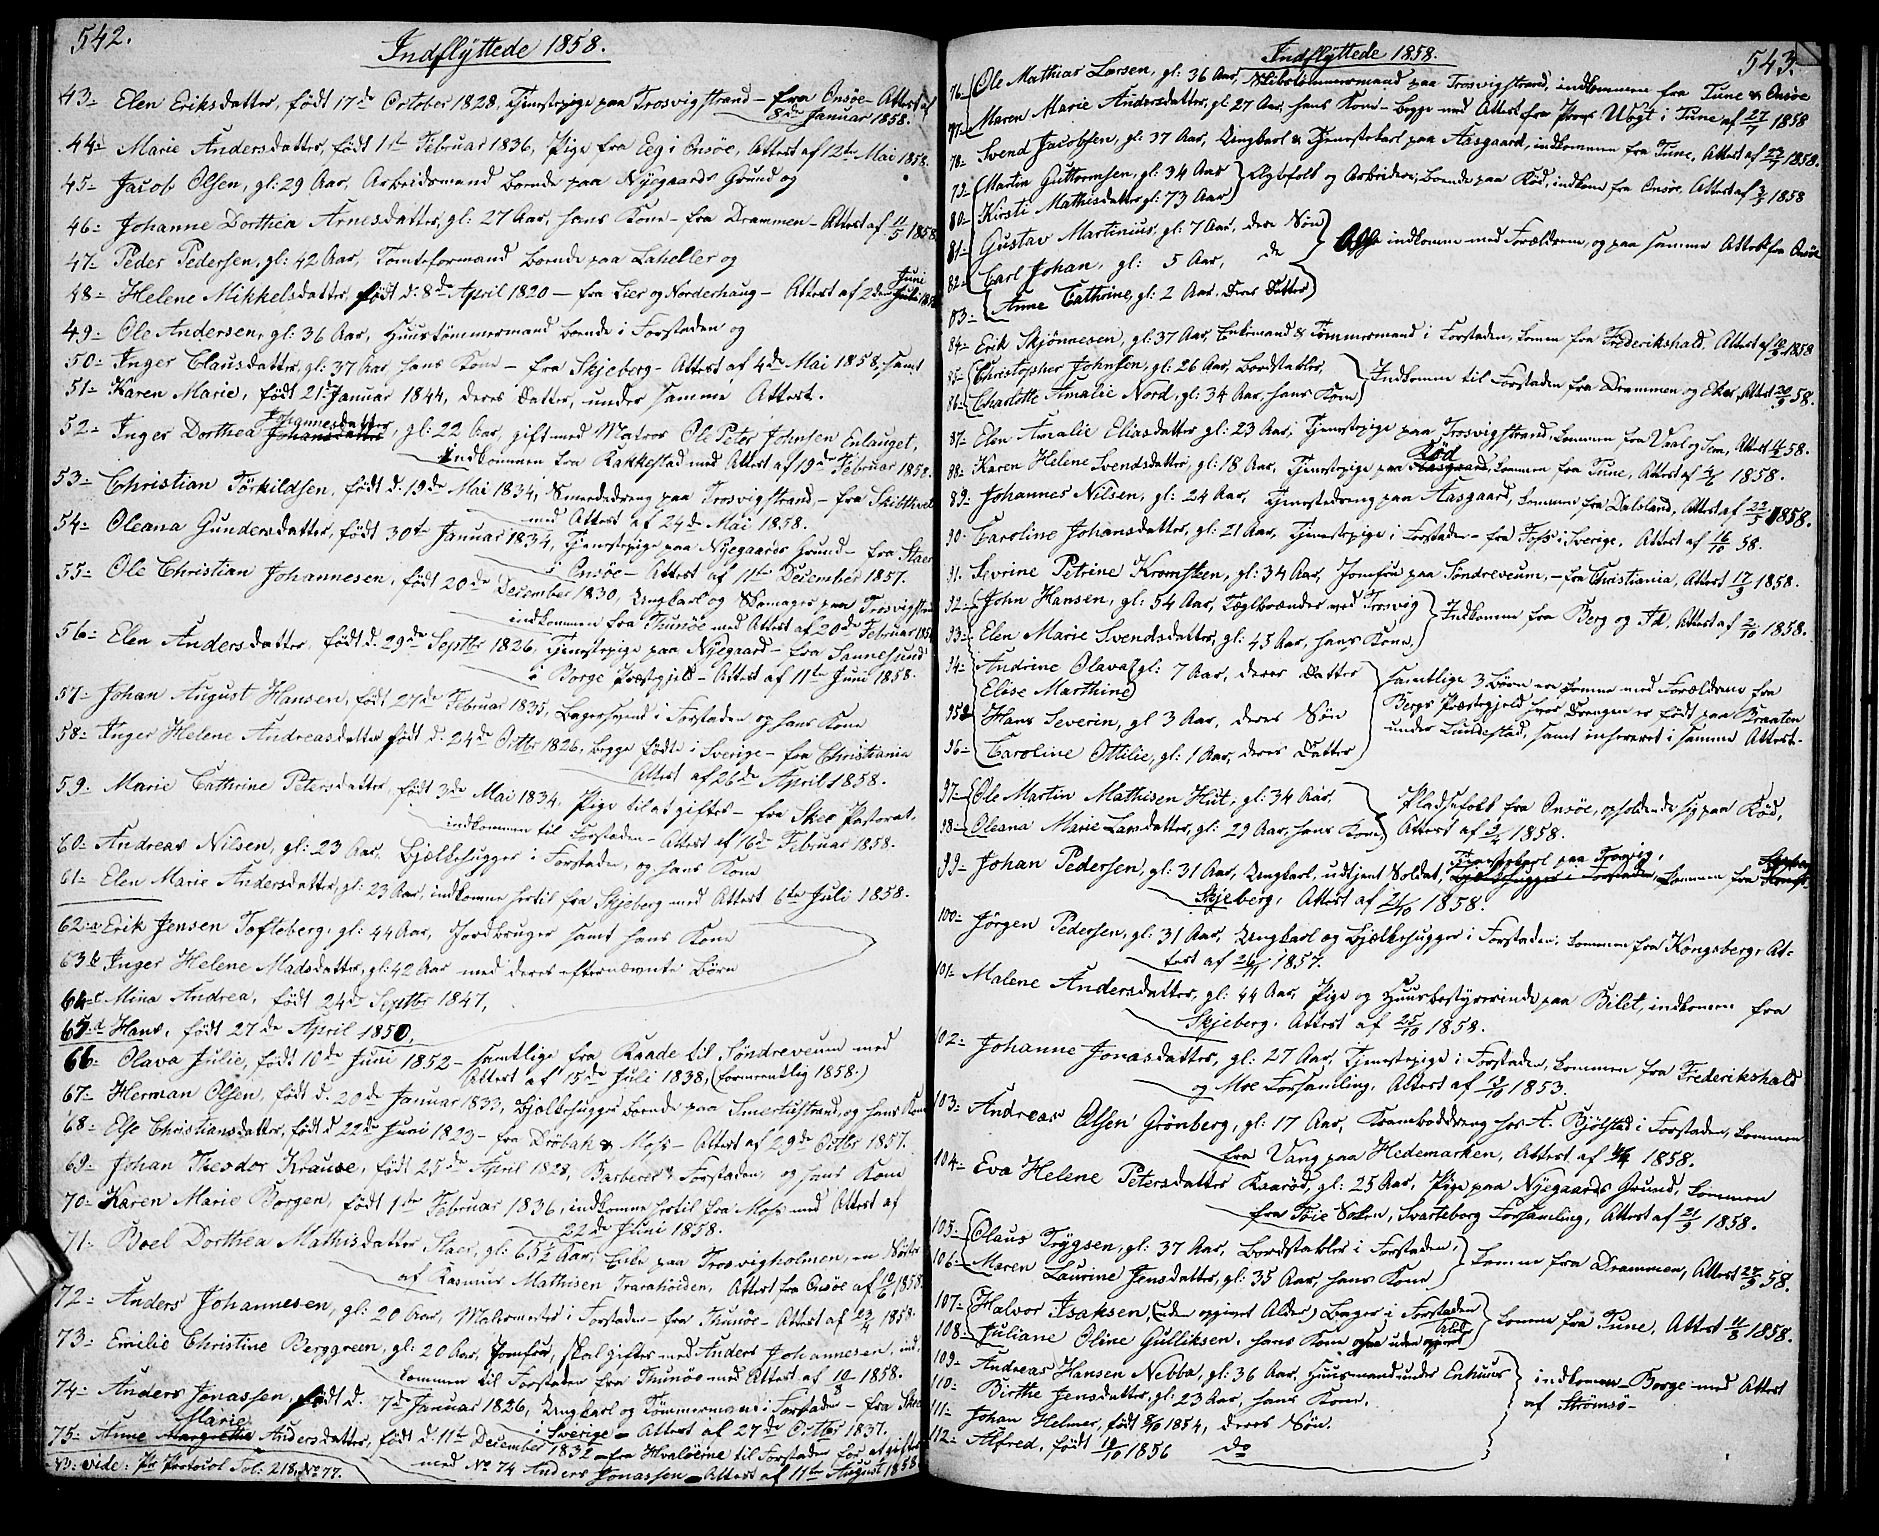 542.
Indflyttede 1858.
43- Elen Eriksdatter, født 17de October 1828, Tjenestepige paa Trosvigstrand - fra Onsøe - Attest af
8de Januar 1858.
44- Marie Andersdatter, født 1te Februar 1836, Pige fra Eeg i Onsøe, Attest af 12te Mai 1858.
45- Jacob Olsen, gl: 29 Aar, Arbeidsmand boende paa Nyegaards Grund og
46- Johanne Dorthea Arnesdatter, gl: 27 Aar, hans Kone - fra Drammen - Attest af 11/5 1858
47- Peder Pedersen, gl: 42 Aar, Tomteformand boende paa Laheller og
48- Helene Mikkelsdatter, født d: 8de April 1820 - fra Lier og Norderhaug - Attest af 2den Juni
49- Ole Andersen, gl: 36 Aar, Huustømmermand boende i Forstaden og
50- Inger Clausdatter, gl: 37 Aar, hans Kone - fra Skjeberg - Attest af 4de Mai 1858, samt
51- Karen Marie, født 21. Januar 1844, deres Datter, under samme Attest.
52- Inger Dorthea Johannesdatter, gl: 22 Aar, gift med Matros Ole Peter Johnsen Enlauget,
Indkommen fra Rakkestad med Attest af 19de Februar 1858.
53- Christian Törkildsen, født d. 19de Mai 1834, Smededreng paa Trosvigstrand, - fra Skibthvet
med Attest af 24de Mai 1858.
54- Oleana Gundersdatter, født 30te Januar 1834, Tjenestepige paa Nyegaards Grund - fra Staer
i Onsøe - Attest af 11te December 1857.
55- Ole Christian Johannesen, født 20de December 1830, Ungkarl og Skomager paa Trosvigstrand
indkommen fra Thunöe med Attest af 20de Februar 1858
56- Elen Andersdatter, født d. 29de Septbr 1826, Tjenestepige paa Nyegaard - fra Sannesund
i Borge Præstegjeld - Attest af 11te Juni 1858.
57- Johan August Hansen, født 27de Februar 1835, Bagersvend i Forstaden og hans Kone
58- Inger Helene Andreasdatter født d. 24de Octbr 1826, begge fødte i Sverige - fra Christiania
Attest af 26de April 1858.
59- Marie Cathrine Petersdatter, født 3de Mai 1834, Pige til at giftes - fra Skee Pastorat,
indkommen til Forstaden - Attest af 16de Februar 1858.
60- Andreas Nilsen, gl: 23 Aar, Bjælkehugger i Forstaden, og hans Kone
61- Elen Marie Andersdatter, gl: 23 Aar, indkomne hertil fra Skjeberg med Attest 6te Juli 1858.
62-a Erik Jensen Tofteberg, gl: 44 Aar, Jordbruger samt hans Kone
63 b Inger Helene Madsdatter, gl: 42 Aar med deres efternævnte Børn
64-c Mina Andrea, født 24de Septbr 1847,
65-d Hans, født 27de April 1850,
66- Olava Julie, født 10de Juni 1852 - samtlige fra Raade til Søndreveum med
Attest af 15de Juli 1838, (formeentlig 1858.)
67- Herman Olsen, født d. 20de Januar 1833, Bjælkehugger boende paa Smertustrand, og hans Kone
68- Else Christiansdatter, født d 22de Juni 1823 - fra Dröbak & Moss - Attest af 29de Octbr 1857.
69- Johan Theodor Krause, født 25de April 1828, Barberer i Forstaden, og hans Kone
70- Karen Marie Borgen, født 1te Februar 1836, indkomne hertil fra Moss med Attest af
22de Juni 1858.
71- Boel Dorthea Mathisdatter Staer, gl: 65½ Aar, Enke paa Trosvigholmen, en Søster
af Rasmus Mathisen Trarahöiden, Attest fra Onsöe af 1858
72- Anders Johannesen, gl: 20 Aar, Malermester i Forstaden - fra Thunöe - Attest af 23/4 1858.
73- Emilie Christine Berggreen, gl: 20 Aar, Jomfru, skal giftes med Anders Johannesen, ind-
kommen til Forstaden fra Thunöe med Attest af 10/8 1858.
74- Anders Jonassen, født d. 7de Januar 1826, Ungkarl og Tömmermand i Forstaden - fra Skee
i Sverige - Attest af 27de Octbr 1837.
75- Anne Marie Andersdatter, født d. 11te December 1832 - fra Hvaløerne til Forstaden for at giftes
med No 74 Anders Jonassen - Attest af 11te August 1858
NB: vide: Protocol Fol: 218, No 77.
543.
Indflyttede 1858.
76- Ole Mathias Larsen, gl: 36 Aar, Skibstömmermand paa Trosvigstrand, indkommen fra Tune & Onsöe
77- Maren Marie Andersdatter, gl: 27 Aar, hans Kone - begge med Attest fra i Tune af 27/7 1858
78- Svend Jacobsen, gl: 37 Aar, Ungkarl & Tjenestekarl paa Aasgaard, indkommen fra Tune, Attest af 1858.
79- Martin Guttormsen, gl: 34 Aar
80- Kirsti Mathisdatter gl: 73 Aar } og Arbeidere, boende paa Röd, indkomne fra Onsöe, Attest af 1858
81- Gustav Martinius, gl: 7 Aar, deres Sön
82- Carl Johan, gl: 5 Aar, do } indkomne med Forældrene, og paa samme Attest fra Onsöe
83- Anne Cathrine, gl: 2 Aar, deres Datter
84- Erik Skjönnesen, gl: 37 Aar, Enkemand & Tömmermand i Forstaden, kommen fra Frederikshald, Attest af 1858
85- Christopher Johnsen, gl: 26 Aar, Bordstabler,
86- Charlotte Amalie Nord, gl: 34 Aar, hans Kone } Indkomne til Forstaden fra Drammen og Eker, Attest 58.
87- Elen Amalie Eliasdatter gl: 23 Aar, Tjenestepige paa Trosvigstrand, kommen fra Vaal og Sem, Attest 58.
88- Karen Helene Svendsdatter, gl: 18 Aar, Tjenestepige paa Röd, kommen fra Tune, Attest af 1858.
89- Johannes Nilsen, gl: 24 Aar, Tjenestedreng paa Aasgaard, kommen fra Dalsland, Attest af 22/5 1858.
90- Caroline Johansdatter, gl: 21 Aar, Tjenestepige i Forstaden - fra Foss i Sverige, Attest af 16/10 58.
91- Sivrine Petrine Kromsteen, gl: 34 Aar, Jomfru paa Söndreveum, - fra Christiania, Attest 17/9 1858.
92- John Hansen, gl: 54 Aar, Teglbrænder ved Trosvig
93- Elen Marie Svendsdatter, gl: 45 Aar, hans Kone, } Indkomne fra Berg og Id, Attest af 2/10 1858.
94- Andrine Olava Elise Marthine gl: 7 Aar, deres Datter
95- Hans Severin, gl 3 Aar, deres Sön
96- Caroline Ottilie, gl: 1 Aar, deres Datter
} samtlige 3 Børn ere komne med Forældrene fra
Bergs Præstegjeld hvor Drengen er født paa Braaten
under Lundestad, samt inhereret i samme Attest.
97- Ole Martin Mathisen Hüt, gl: 34 Aar,
98- Oleana Marie Larsdatter, gl: 29 Aar, hans Kone
} Pladsefolk fra Onsöe, opholdende sig paa Röd,
Attest af 1858.
99- Johan Pedersen, gl: 31 Aar, Ungkarl, udtjent Soldat, Tjenestekarl paa Trosvig, kommen fra
Skjeberg, Attest af 21/10 1858.
100- Jörgen Pedersen, gl: 31 Aar, Ungkarl og Bjælkehugger i Forstaden, kommen fra Kongsberg, At-
test af 1857.
101- Malene Andersdatter, gl: 44 Aar, Pige og Huusbestyrerinde paa Bilet, indkommen fra
Skjeberg, Attest af 25/10 1858.
102- Johanne Jonasdatter, gl: 27 Aar, Tjenestepige i Forstaden, kommen fra Frederikshald
og Moe Forsamling, Attest af 1853.
103- Andreas Olsen Grönberg, gl: 17 Aar, Kramboddreng hos A. Bjölstad i Forstaden, kommen
fra Vang paa Hedemarken, Attest af 1858.
104- Eva Helene Petersdatter Kaaröd, gl: 25 Aar, Pige paa Nyegaards Grund, kommen
fra Foie Soken, Svarteborg Forsamling, Attest af 21/9 1858.
105- Claus Trygsen, gl: 37 Aar, Bordstabler i Forstaden,
106- Maren Laurine Jensdatter, gl: 35 Aar, hans Kone } komne fra Drammen, Attest 27/9 58.
107- Halvor Isaksen, (uden opgivet Alder) Bager i Forstaden
108- Juliane Oline Gulliksen, hans Kone ogsaa uden opgivet Alder } komne fra Tune, Attest 11/8 1858.
109- Andreas Hansen Nebba, gl: 36 Aar, Huusmand under Enhuus
110- Birthe Jensdatter, gl: 23 Aar, hans Kone,
111- Johan Helmer, født 8/10 1854, deres Sön.
112- Alfred, født 19/10 1856 do
} indkomne - Borge med Attest
af Strömsö -